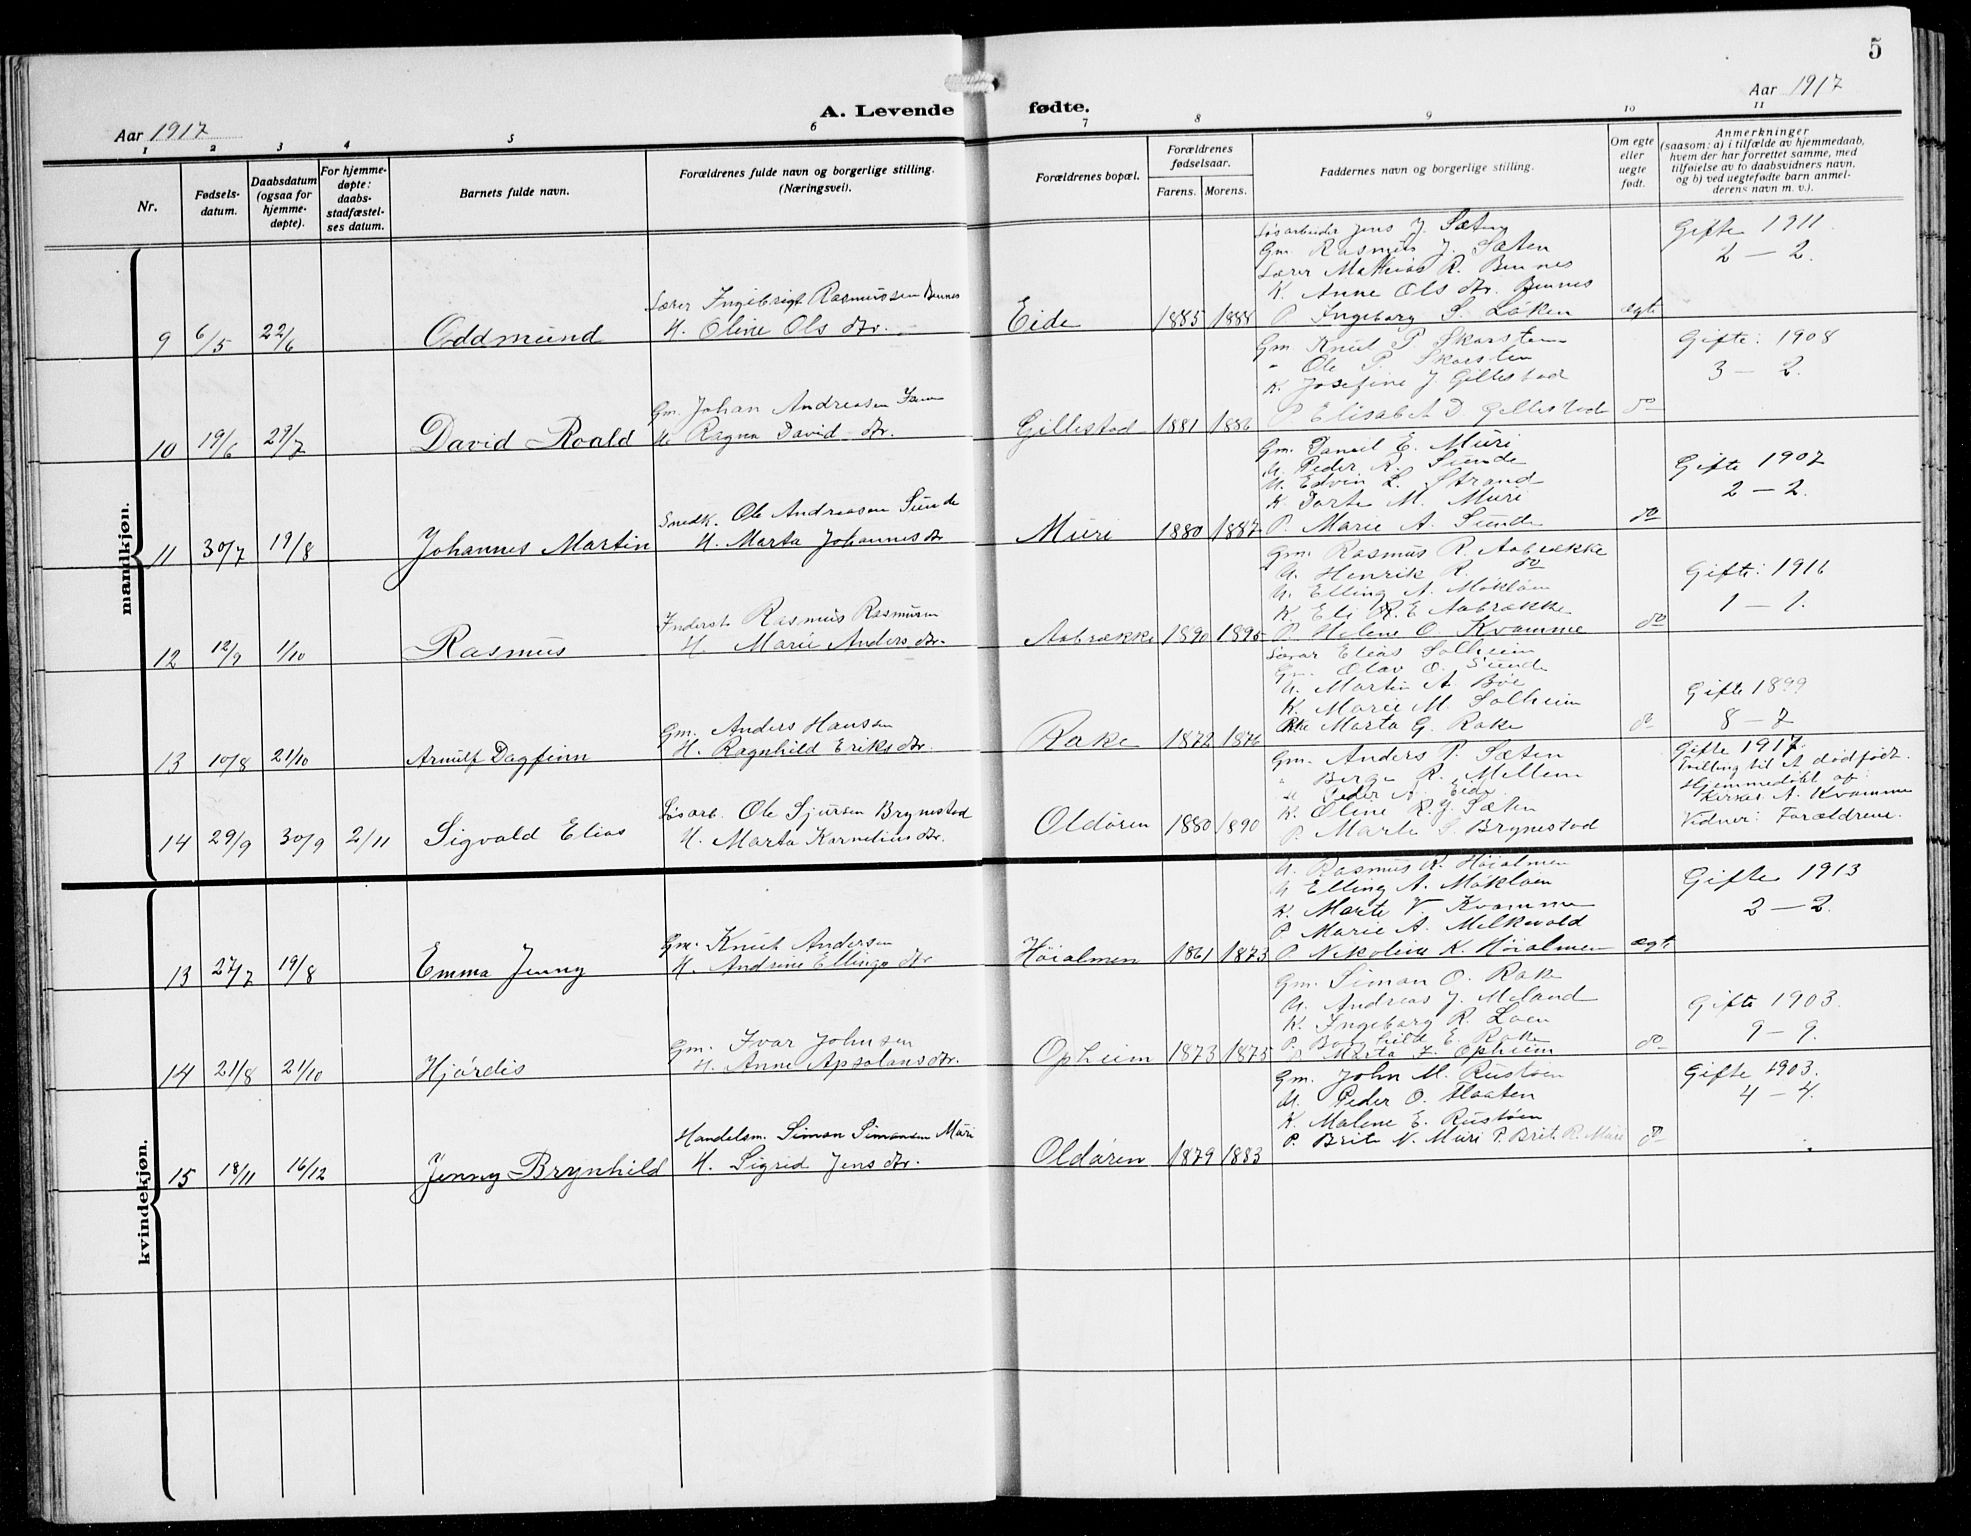 5
Aar 1917
Aar 1917
A. Levende fødte.
1 2 3 4 5 6 7 8 9 10 11
Nr.
Fødsels-
datum.
Daabsdatum
(ogsaa for
hjemme-
døpte).
For hjemme-
døpte:
daabs-
stadfæstel-
ses datum.
Barnets fulde navn.
Forældrenes fulde navn og borgerlige stilling.
(Næringsvei).
Forældrenes bopæl.
Forældrenes
fødselsaar.
Farens. Morens.
Faddernes navn og borgerlige stilling.
Om egte
eller
uegte
født.
Anmerkninger
(saasom: a) i tilfælde av hjemmedaab,
hvem der har forrettet samme, med
tilføielse av to daabsvidners navn.
og b) ved uegtefødte barn anmel-
derens navn m. v.).
mandkjøn.
9 6/5 22/6 Oddmund
Lærer Ingebrigt Rasmussen Bennes
H. Oline Ols dtr.
Eide 1885 1888
Løsarbeider Jens J. Sæten
Gm. Rasmus J. Sæten
Lærer Mathias R. Bennes
K. Anne Ols dtr. Bennes
P. Ingeborg S. Løken
egte
Gifte 1911
2 — 2.
10 19/6 29/7 David Roald
Gm. Johan Andreasen
H. Ragna David dtr.
Gillestad 1881 1886
Gm Knut P Skarsten
" Ole P. Skarsten
K. Josefine J Gillestad
P. Elisabet D. Gillestad
do
Gifte: 1908
3 — 2.
11 30/7 19/8 Johannes Martin
Snedk. Ole Andreasen Sunde
H. Marta Johannes dtr
Muri 1880 1887
Gm. Daniel E. Muri
U. Peder R. Sunde
U. Edvin L. Strand
K. Dorte M. Muri
P. Marie A. Sunde
do
Gifte 1907
2 — 2.
12 12/9 1/10 Rasmus
Inderst Rasmus Rasmussen
H. Marie Anders dtr.
Aabrække 1890 1895
Gm. Rasmus R. Aabrække
U. Henrik R. do
U. Elling A. Mökløin
K. Eli R. E Aabrække
P. Helene O. Kvamme
do
Gifte: 1916
1 — 1.
13 10/8 21/10 Arnulf Dagfinn
Gm. Anders Hansen
H. Ragnhild Eriks dtr.
Rake 1872 1876
Lærer Elias Solheim
Gm. Olav O. Sunde
U. Martin A. Bøe
K. Marie M. Solheim
Marta G. Rake
do
Gifte 1899
8 — 7
14 29/9 30/9 2/11 Sigvald Elias
Løsarb. Ole Sjursen Brynestad
H. Marta Kornelius dtr.
Oldøren 1880 1890
Gm. Anders P. Sæten
" Berge R. Mellem
U Peder A. Eide.
K. Oline R. J. Sæten
P. Marte S. Brynestad
Gifte 1917.
Tvilling til A dødfødt.
Hjemmedøbt af
Kirkes. A. Kvamme
Vidner: Forældrene.
kvindekjøn.
13 27/7 19/8 Emma Jenny
Gm. Knut Andersen
H. Andrine Ellings dtr
Høialmen 1861 1873
U. Rasmus K. Høialmen
U Elling A. Mökløin
K. Marte V. Kvamme
P Marie A. Melkevold
P Nikoline K. Høialmen
egte
Gifte 1913
2 — 2.
14 21/8 21/10 Hjørdis
Gm. Ivar Johnsen
H. Anne Apsolons dtr.
Opheim 1873 1875
Gm. Simon O. Rake
U. Andreas J. Meland
K. Ingeborg R. Loen
P. Borghild E. Rake
P Marta I. Opheim
do
Gifte 1903.
9 — 9.
15 18/11 16/12 Jenny Brynhild
Handelsm. Simon Simonsen Muri
H. Sigrid Jens dtr.
Oldøren 1879 1883
Gm. John M. Rustøen
U. Peder O. Flaaten
K. Malene E. Rustøen
P. Brite N. Muri P. Brit. R. Muri
do
Gifte 1903.
4 — 4.